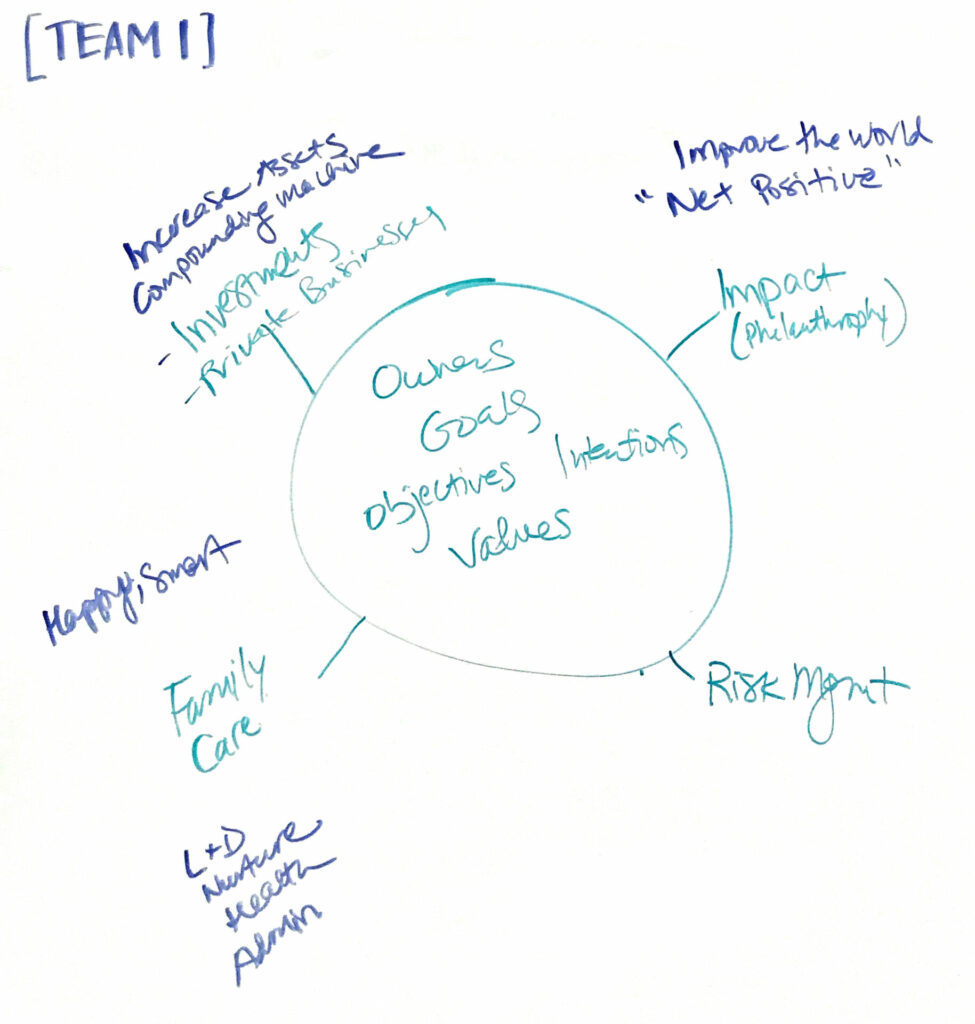 [TEAM 1]
Increase Assets
Compounding Machine
- Investments
- Private Businesses
Improve the World
"Net Positive"
Impact
(Philanthrophy)
Owners
Goals
Objectives Intentions
Values
Happy, Smart
Family
Care
Risk Mgmt
L+D
Nurture
Health
Admin